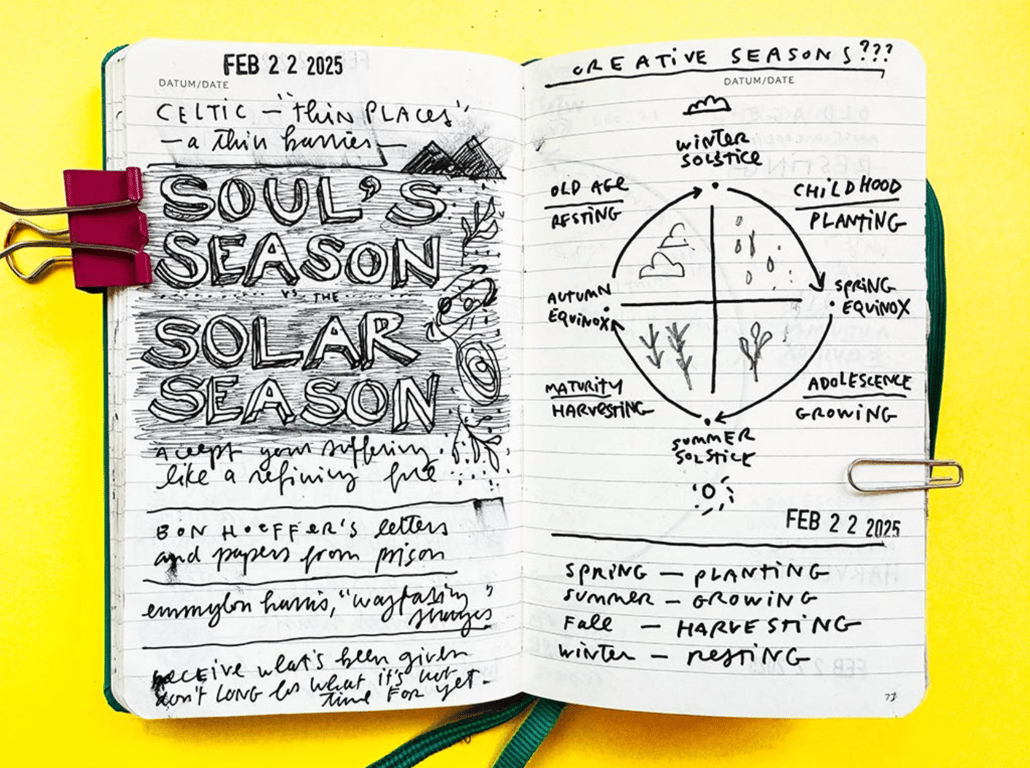 FEB 22 2025
DATUM/DATE
CELTIC — "thin PLACES"
— a thin barrier —
SOUL'S
SEASON
VS. THE
SOLAR
SEASON
Accept your suffering
like a refining fire
BONHOEFFER'S letters
and papers from prison
emmylou harris, "wayfaring
RECEIVE what's been given
don't LONG for what it's not
time FOR yet.
CREATIVE SEASONS???
DATUM/DATE
WINTER
SOLSTICE
OLD AGE
RESTING
CHILDHOOD
PLANTING
AUTUMN
EQUINOX
SPRING
EQUINOX
MATURITY
HARVESTING
ADOLESCENCE
GROWING
SUMMER
SOLSTICE
FEB 22 2025
SPRING — PLANTING
SUMMER — GROWING
FALL — HARVESTING
WINTER — RESTING